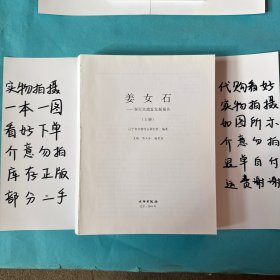 实物拍摄
一本一图
看好下单
介意勿拍
库存正版
部分二手
姜女石
——秦行宫遗址发掘报告
（上册）
辽宁省文物考古研究所 编著
文物出版社
代购看好
实物拍摄
如图所示
介意勿拍
且单自付
还责谢谢